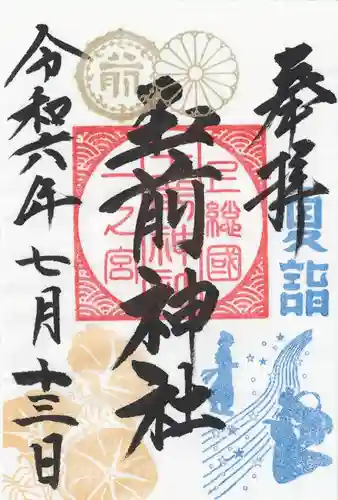 奉拝
夏詣
玉前神社
上總國
一之宮
前
令和六年 七月十三日